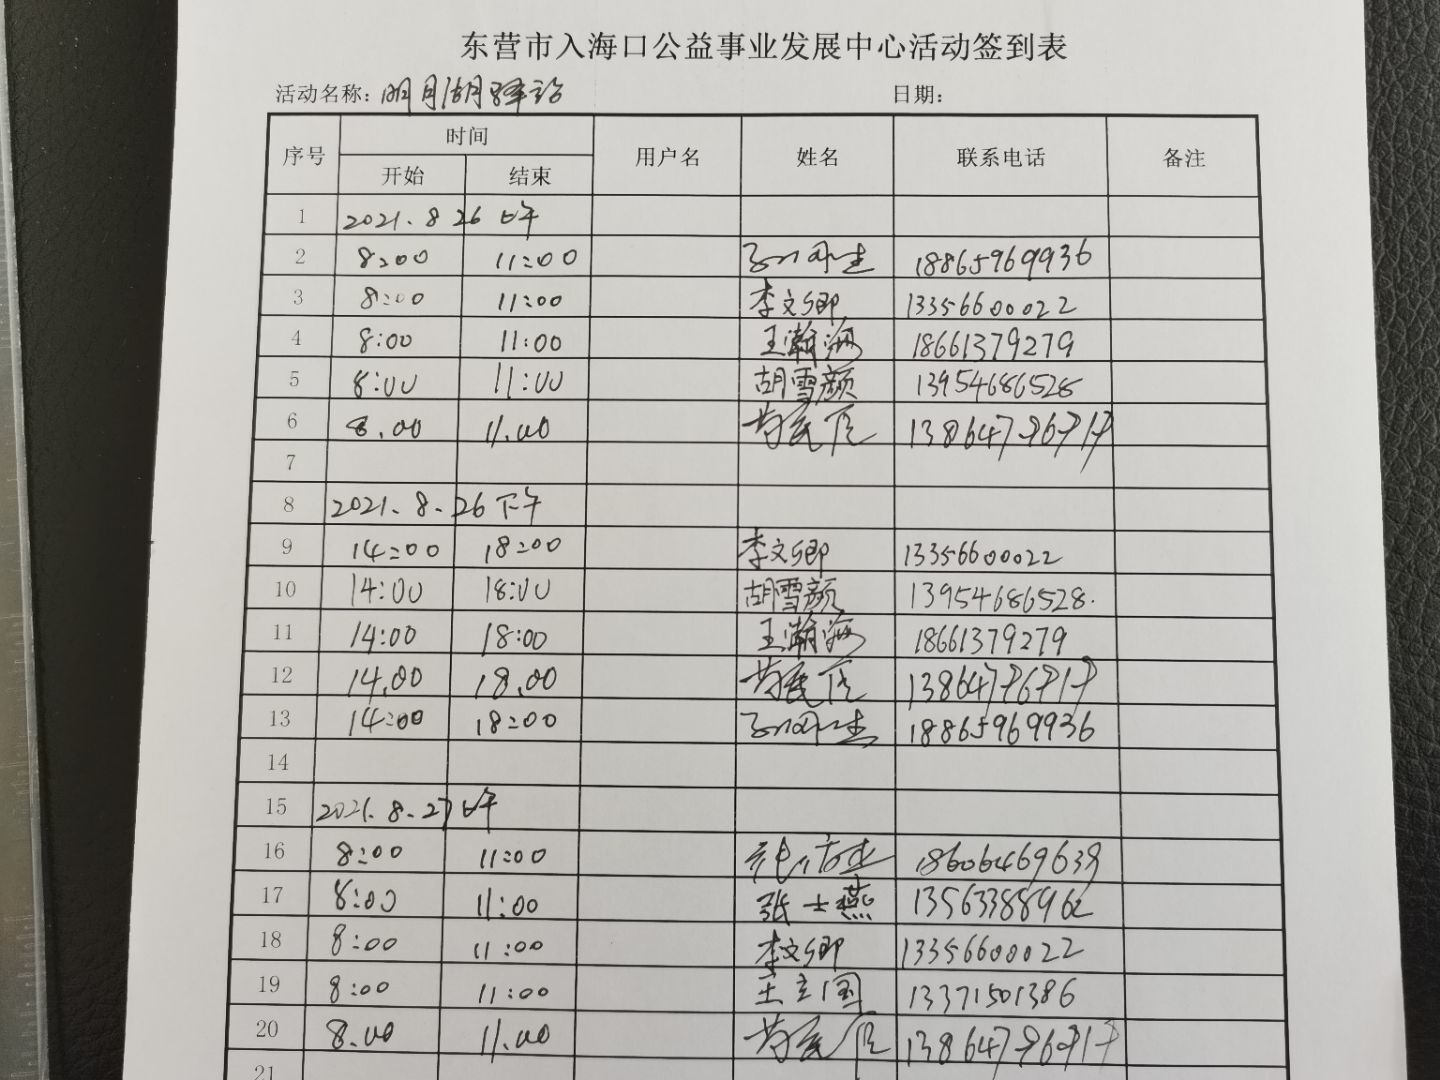 东营市入海口公益事业发展中心活动签到表
活动名称：明月湖驿站 日期：
序号 时间 用户名 姓名 联系电话 备注
开始 结束
1 2021.8 26 上午
2 8:00 11:00 18865969936
3 8:00 11:00 李文卿 13356600022
4 8:00 11:00 王瀚 18661379279
5 8:00 11:00 胡雪颜 13954686528
6 8.00 11.00
7
8 2021.8.26 下午
9 14:00 18:00 李文卿 13356600022
10 14:00 18:00 胡雪颜 13954686528.
11 14:00 18:00 王瀚 18661379279
12 14.00 18.00
13 14:00 18:00 18865969936
14
15 2021.8.27 上午
16 8:00 11:00 18606469639
17 8:00 11:00 张士燕 13563388962
18 8:00 11:00 李文卿 13356600022
19 8:00 11:00 王立国 13371501386
20 8.00 11.00
21